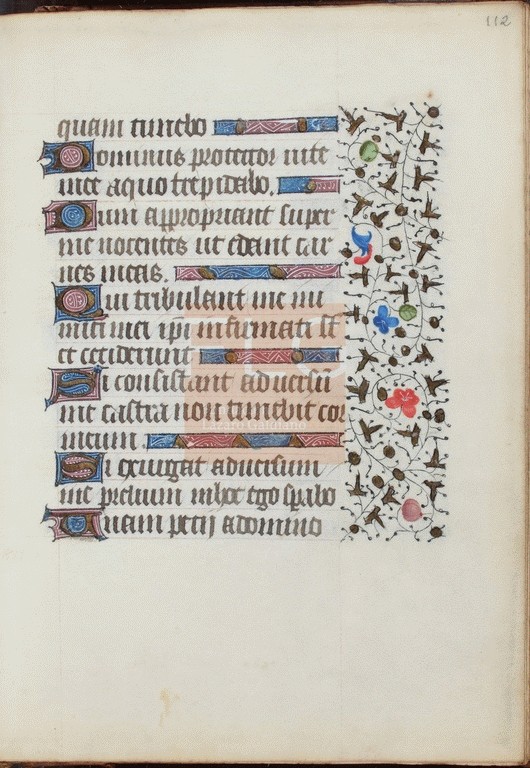 112
quam timebo
Dominus protector vite
mee a quo trepidabo.
Dum appropriant super
me nocentes ut edant car
nes meas.
Qui tribulant me ini
mici mei ipi infirmati st
et ceciderunt
Si consistant adversū
me castra non timebit cor
meum
Si exurgat adversum
me prelium in hoc ego spabo
Quam petii a domino
FLG
Lázaro Galdiano